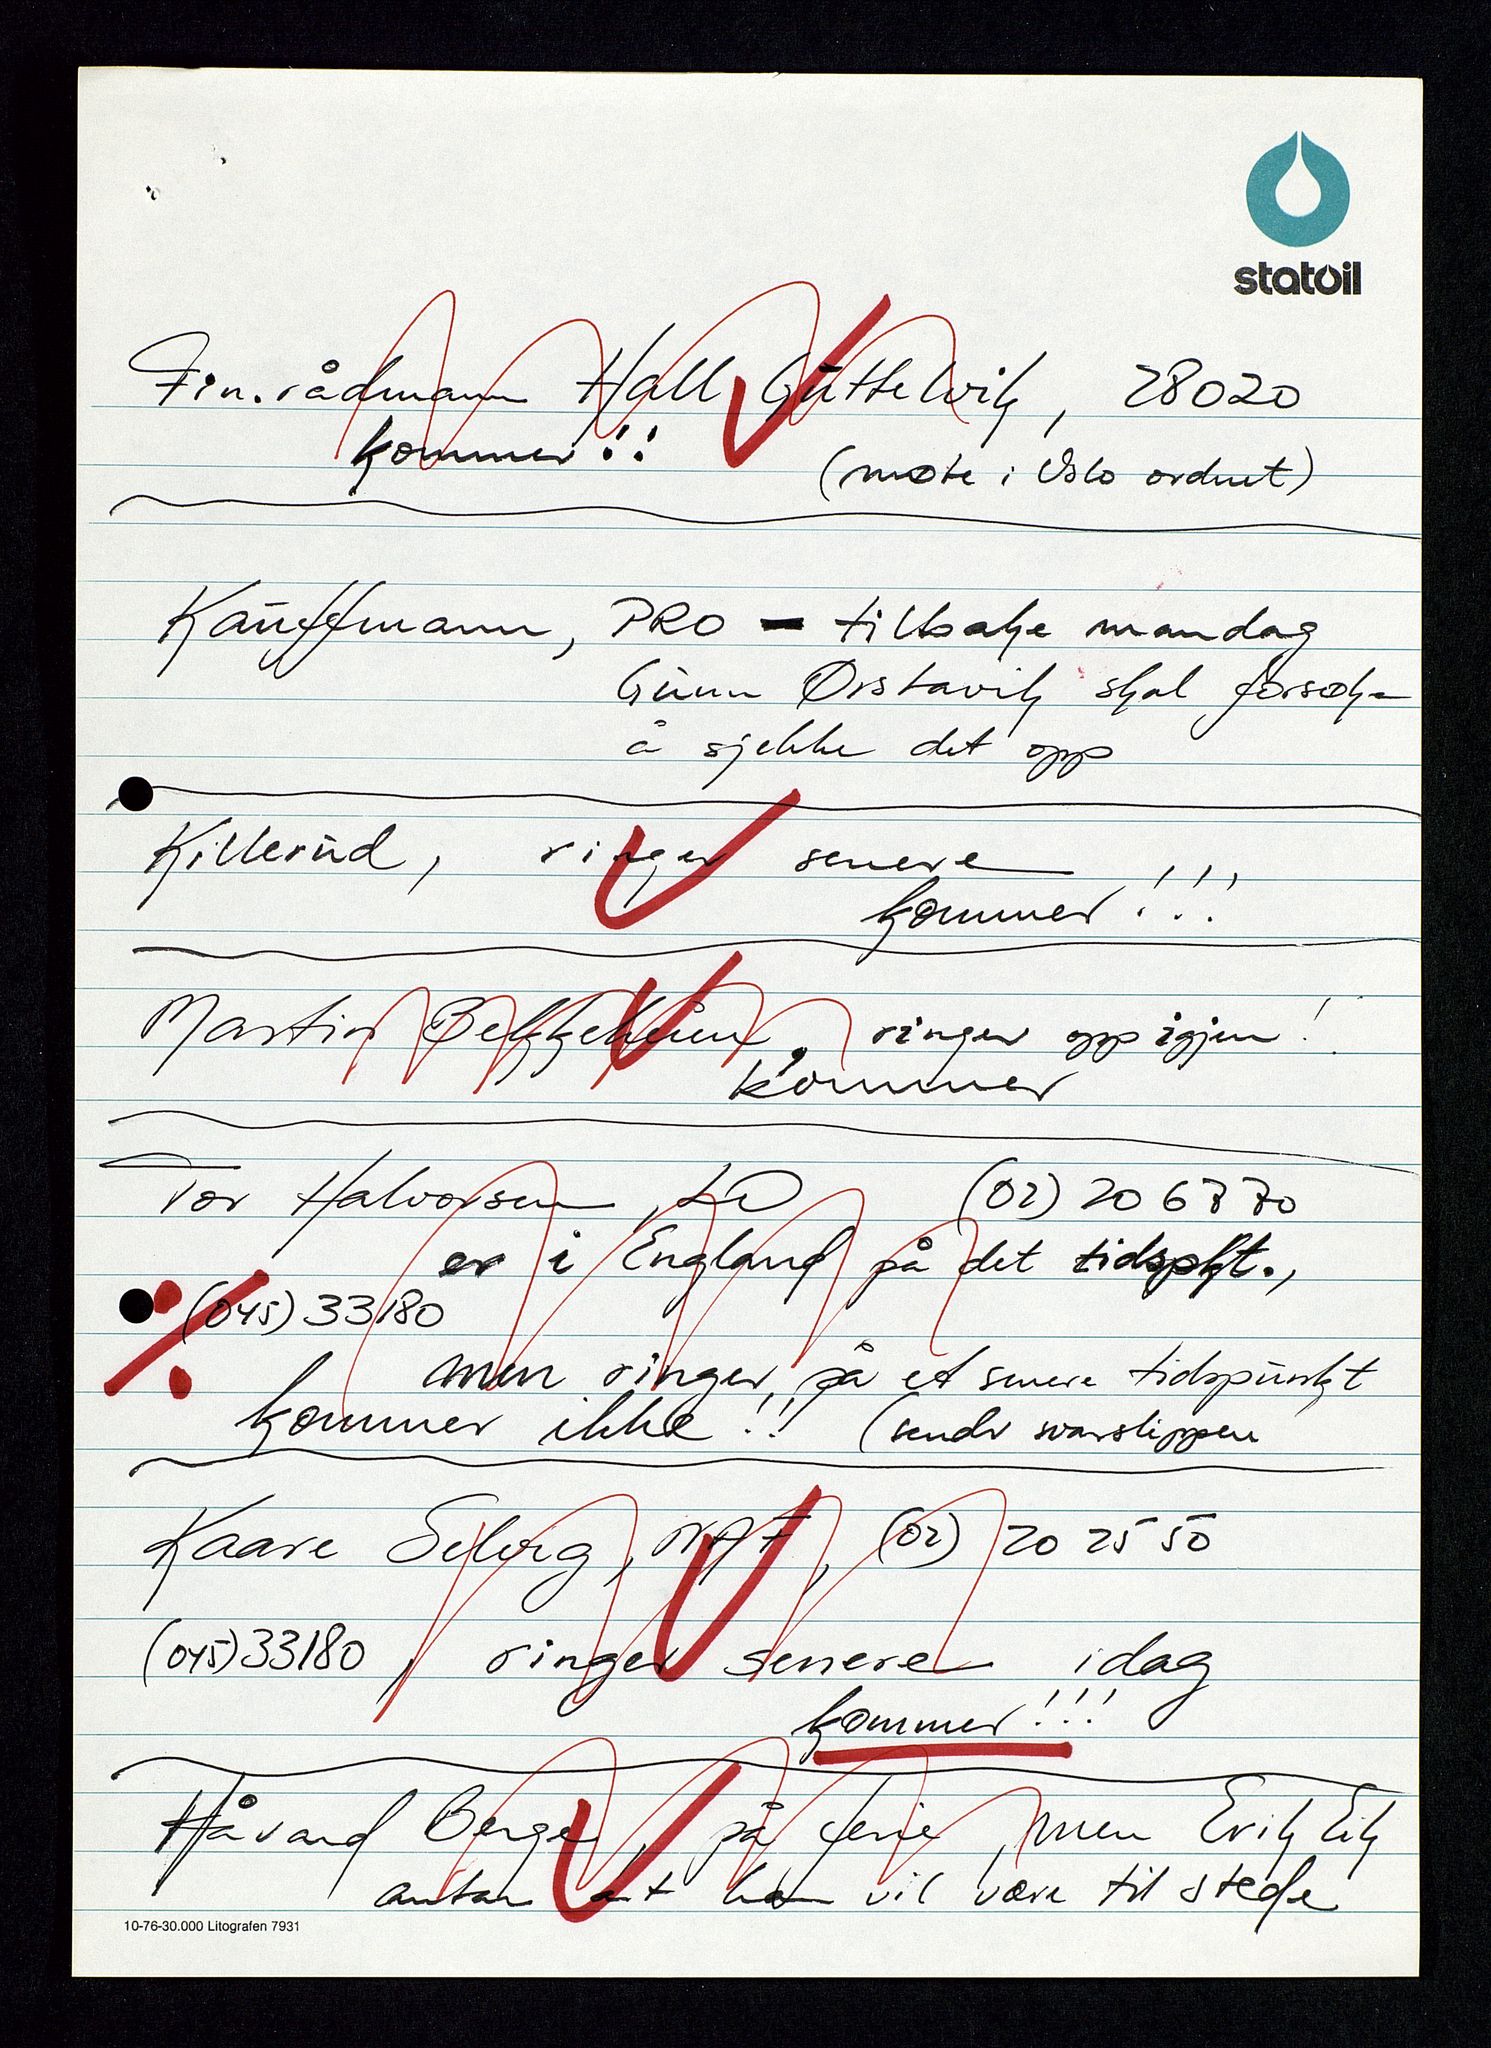 statoil
Fin.rådmann Hall Guttelvik, 28020
kommer!! (møte i Oslo ordnet)
Kauffmann, PRO - tilbake mandag
Gunn Ørstavik skal forsøke
å sjekke det opp
Killerud, ringer senere
kommer!!!
Martin Bekkeheien, ringer opp igjen!
kommer
Tor Halvorsen, LO (02) 20 67 70
er i England på det tidspkt.,
% (045) 33180
men ringer på et senere tidspunkt
kommer ikke!! (sender svarslippen
Kaare Selvig, NAF, (02) 20 25 50
(045) 33180, ringer senere idag
kommer!!!
Håvard Berge, på ferie, men Erik Eik
antar at han vil være til stede
10-76-30.000 Litografen 7931